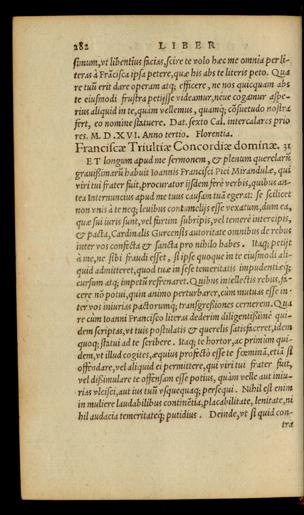 282 LIBER
simum, vt libentius facias, scire te volo hæc me omnia per li-
teras à Frãcisca ipsa petere, quæ his abs te literis peto. Qua
re tuũ erit dare operam atq; efficere, ne nos quicquam abs
te eiusmodi frustra petijsse videamur, néue cogamur aspe-
rius aliquid in te, quàm vellemus, quamq; cõsuetudo nostra
fert, eo nomine statuere. Dat. sexto Cal. intercalares prio
res. M.D.XVI. Anno tertio. Florentia.
Franciscæ Triultiæ Concordiæ dominæ. 31
ET longum apud me sermonem, & plenum querelarũ
grauißimarũ habuit Ioannis Francisci Pici Mirandulæ, qui
viri tui frater fuit, procurator ijsdem ferè verbis, quibus an-
tea Internuncius apud me tuus causam tuã egerat: se scilicet
non vnis à te neq; leuibus contumelijs esse vexatum, dum ea,
quæ sui iuris sunt, vel furtim subripis, vel temerè intercipis,
& pacta, Cardinalis Gurcensis autoritate omnibus de rebus
inter vos confecta & sancta pro nihilo habes. Itaq; petijt
à me, ne sibi fraudi esset, si ipse quoque in te eiusmodi ali-
quid admitteret, quod tuæ in sese temeritatis impudentiæq;
cursum atq; impetũ refrenaret. Quibus intellectis rebus fa-
cere nõ potui, quin animo perturbarer, cùm mutuas esse in-
ter vos iniurias pactorumq; transgreßiones cernerem. Qua
re cùm Ioanni Francisco literas dederim diligentißimè qui-
dem scriptas, vt tuis postulatis & querelis satisfaceret, idem
quoq; statui ad te scribere. Itaq; te hortor, ac primùm qui-
dem, vt illud cogites, æquius profectò esse te fœminã, etiã si
offendare, vel aliquid ei permittere, qui viri tui frater fuit,
vel dißimulare te offensam esse potius, quàm velle aut iniu-
rias vlcisci, aut ius tuũ vsquequaq; persequi. Nihil est enim
in muliere laudabilibus continẽtia, placabilitate, lenitate, ni
hil audacia temeritateq; putidius. Deinde, vt si quid con-
tra